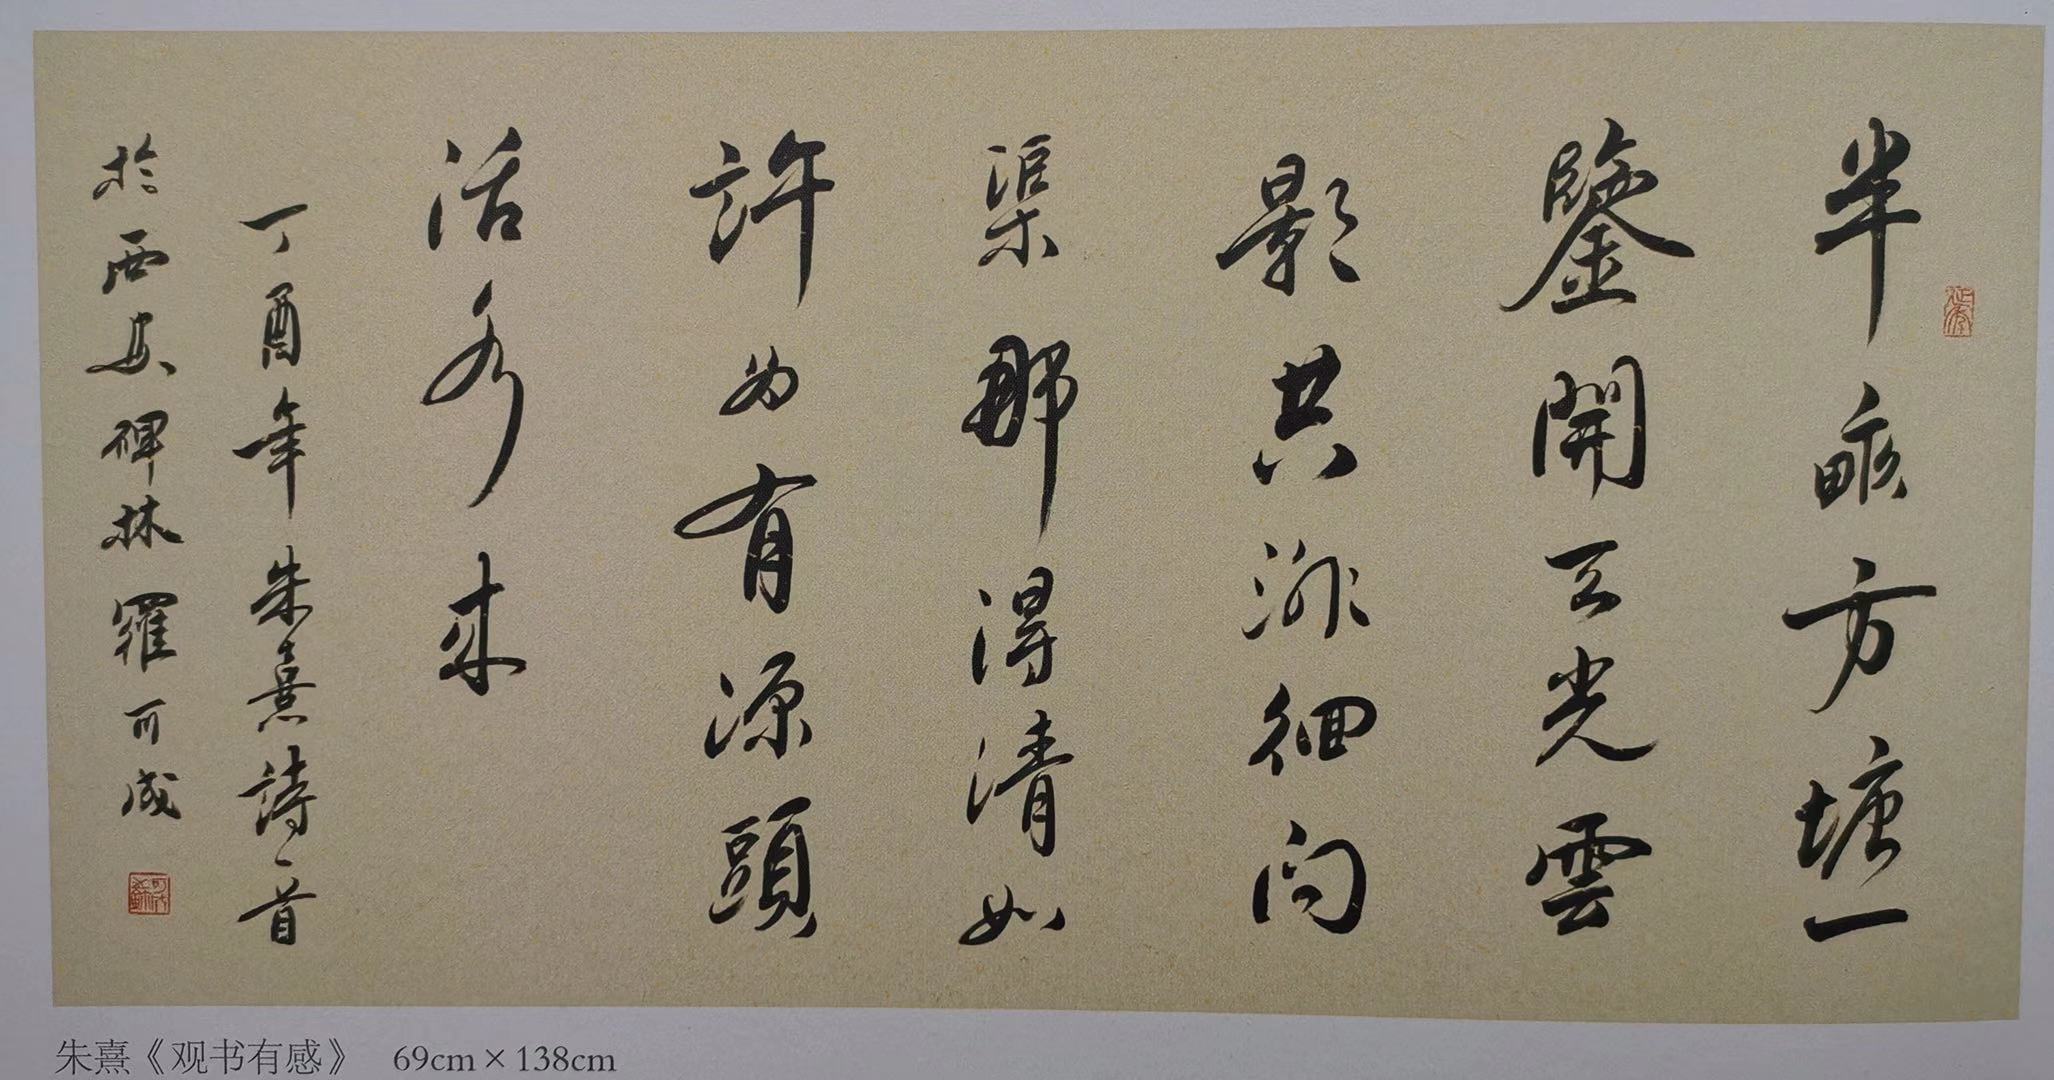 半畝方塘一
鑒開天光雲
影共徘徊问
渠那得清如
許为有源頭
活水来
丁酉年朱熹詩一首
於西安碑林羅可成
朱熹《观书有感》 69cm×138cm